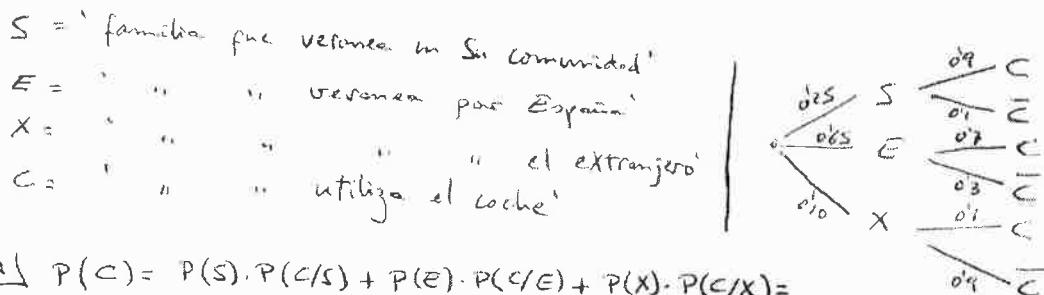 S = 'familia que veranea en su comunidad'
E = ' " " veranea por España'
X = ' " " " " el extranjero'
C = ' " " utiliza el coche'
0'25 S 0'9 C
0'1 C̅
0'65 E 0'7 C
0'3 C̅
0'10 X 0'1 C
0'9 C̅
a) P(C) = P(S)·P(C/S) + P(E)·P(C/E) + P(X)·P(C/X) =